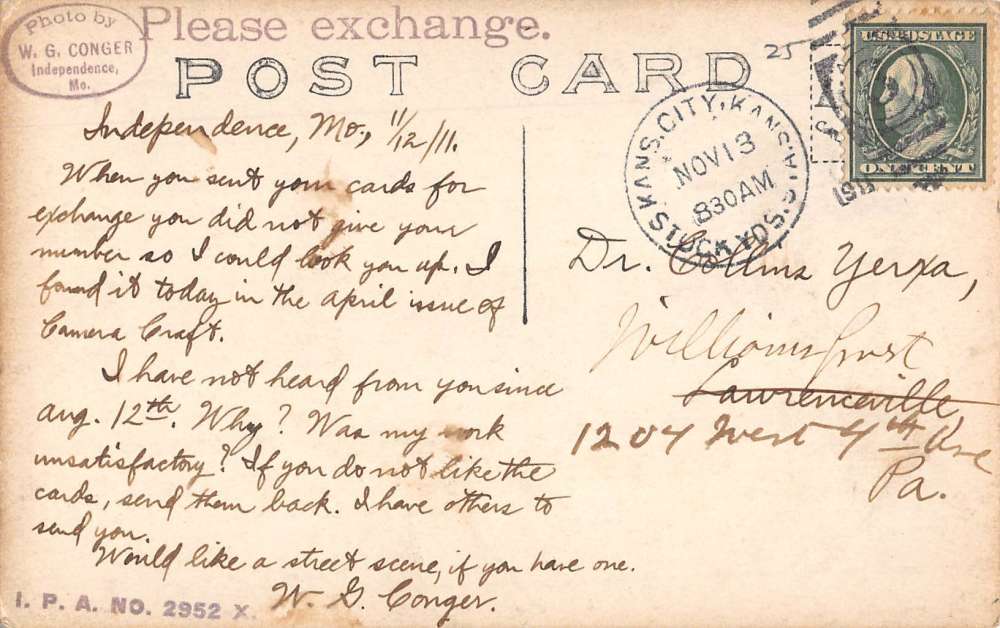 Photo by
W. G. CONGER
Independence,
Mo.
Please exchange.
POST CARD
25
U.S. POSTAGE
ONE CENT
KANS. CITY, KANS.
NOV 13
830AM
STOCK YDS.
Independence, Mo., 11/12/11.
When you sent your cards for
exchange you did not give your
number so I could look you up. I
found it today in the April issue of
Camera Craft.
I have not heard from you since
Aug. 12th. Why? Was my work
unsatisfactory? If you do not like the
cards, send them back. I have others to
send you.
Would like a street scene, if you have one.
W. G. Conger.
I. P. A. NO. 2952 X.
Dr. Collins Yerxa,
Williamsport
Lawrenceville,
1204 West 4th Ave
Pa.